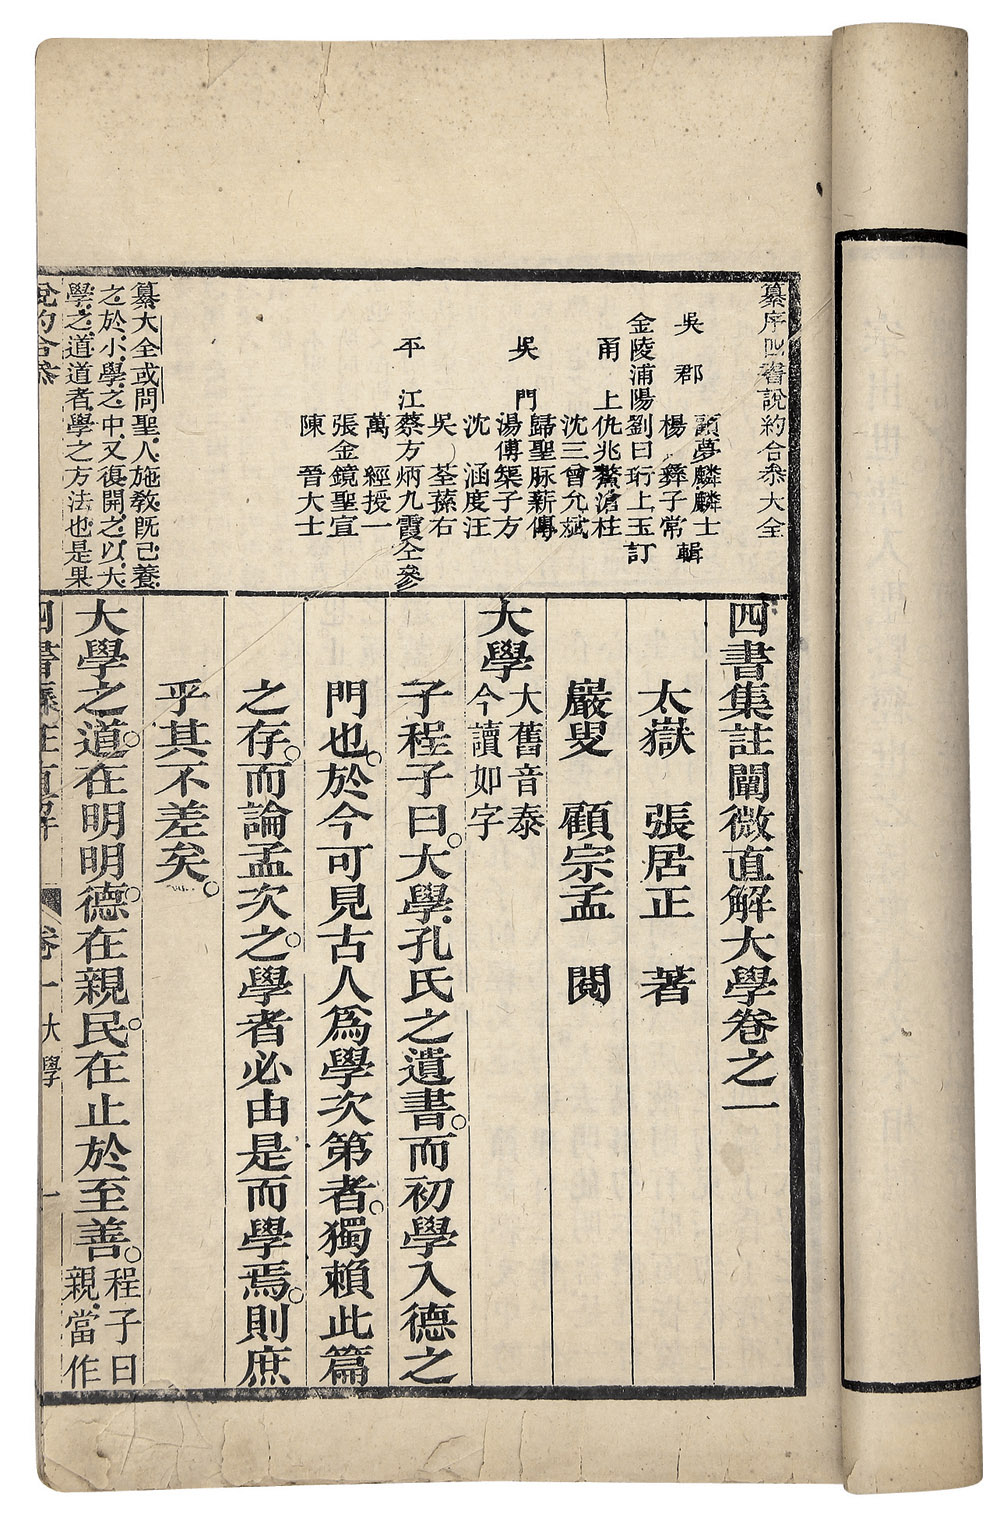 纂序四書說約合叅大全
吳郡
顧夢麟麟士
楊彝子常
輯
金陵浦陽劉曰珩上玉訂
甬上仇兆鰲滄柱
沈三曾允斌
吳門
歸聖脉薪傳
湯傅榘子方
沈涵度汪
吳荃蓀右
平江蔡方炳九霞仝參
萬經授一
張金鏡聖宣
陳晉大士
纂大全或問聖人施教旣已養
之於小學之中又復開之以大
學之道道者學之方法也是果
說約合叅
四書集註闡微直解大學卷之一
太嶽 張居正 著
嚴叟 顧宗孟 閱
大學
大舊音泰
今讀如字
子程子曰大學孔氏之遺書而初學入德之
門也於今可見古人爲學次第者獨賴此篇
之存而論孟次之學者必由是而學焉則庶
乎其不差矣
大學之道在明明德在親民在止於至善
程子曰
親當作
四書集註直解 卷一 大學 一